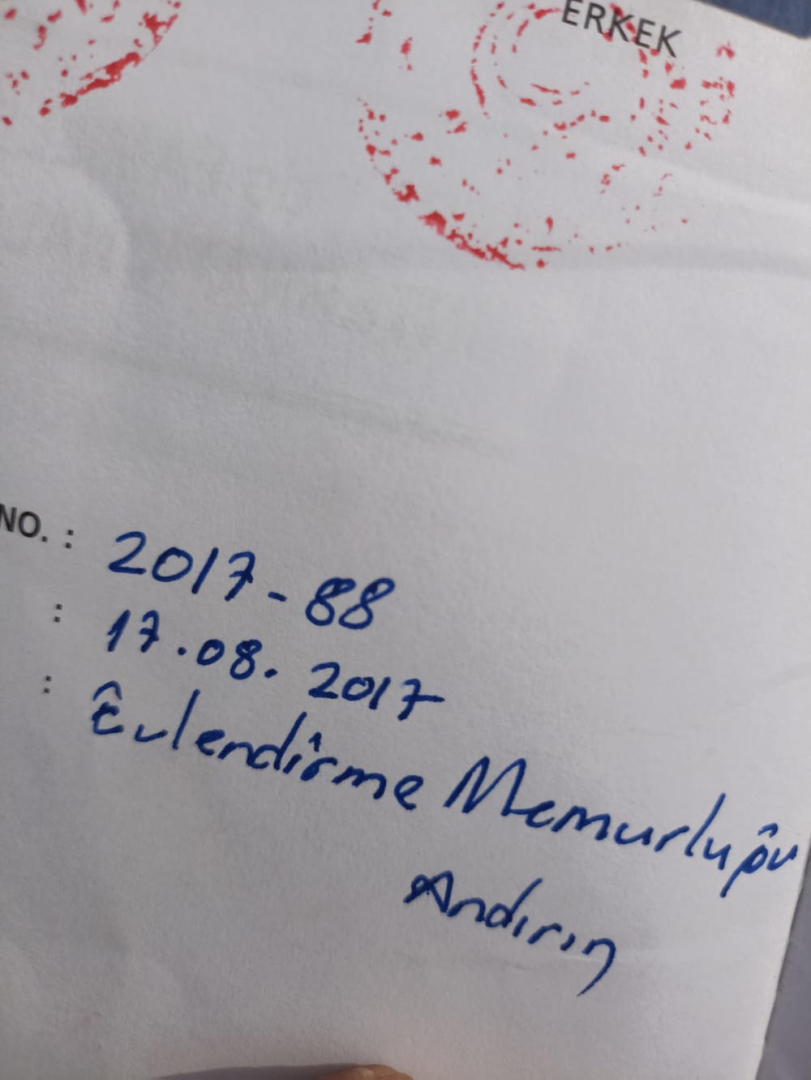 ERKEK
NO. : 2017-88
: 17.08.2017
: Evlendirme Memurluğu
Andırın